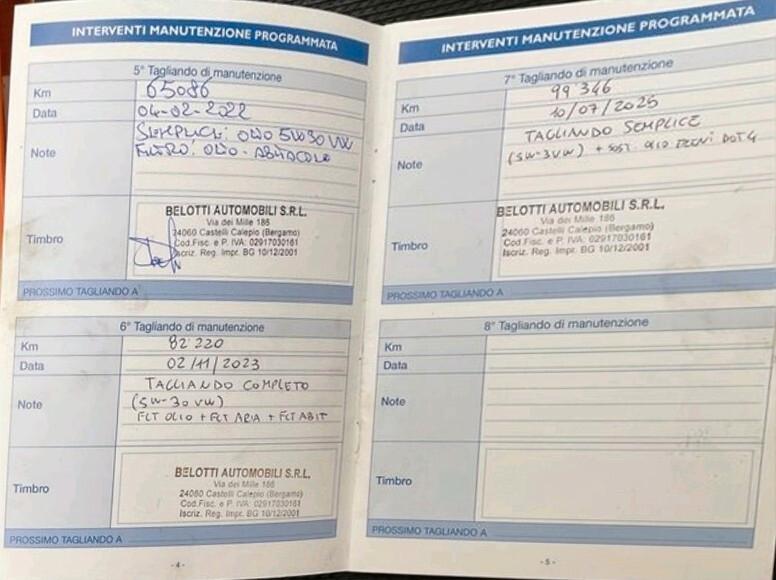 INTERVENTI MANUTENZIONE PROGRAMMATA
5° Tagliando di manutenzione
Km 65086
Data 04-02-2022
Note SEMPLICE: OLIO 5W30 VW
FILTRO: OLIO - ABITACOLO
Timbro BELOTTI AUTOMOBILI S.R.L.
Via dei Mille 186
24060 Castelli Calepio (Bergamo)
Cod.Fisc. e P. IVA: 02917030161
Iscriz. Reg. Impr. BG 10/12/2001
PROSSIMO TAGLIANDO A
6° Tagliando di manutenzione
Km 82220
Data 02/11/2023
Note TAGLIANDO COMPLETO
(5W-30 VW)
FLT OLIO + FLT ARIA + FLT ABIT
Timbro BELOTTI AUTOMOBILI S.R.L.
Via dei Mille 186
24060 Castelli Calepio (Bergamo)
Cod.Fisc. e P. IVA: 02917030161
Iscriz. Reg. Impr. BG 10/12/2001
PROSSIMO TAGLIANDO A
- 4 -
INTERVENTI MANUTENZIONE PROGRAMMATA
7° Tagliando di manutenzione
Km 99'346
Data 10/07/2025
Note TAGLIANDO SEMPLICE
(5W-3VW) + SOST. OLIO FRENI DOT4
Timbro BELOTTI AUTOMOBILI S.R.L.
Via dei Mille 186
24060 Castelli Calepio (Bergamo)
Cod.Fisc. e P. IVA: 02917030161
Iscriz. Reg. Impr. BG 10/12/2001
PROSSIMO TAGLIANDO A
8° Tagliando di manutenzione
Km
Data
Note
Timbro
PROSSIMO TAGLIANDO A
- 5 -